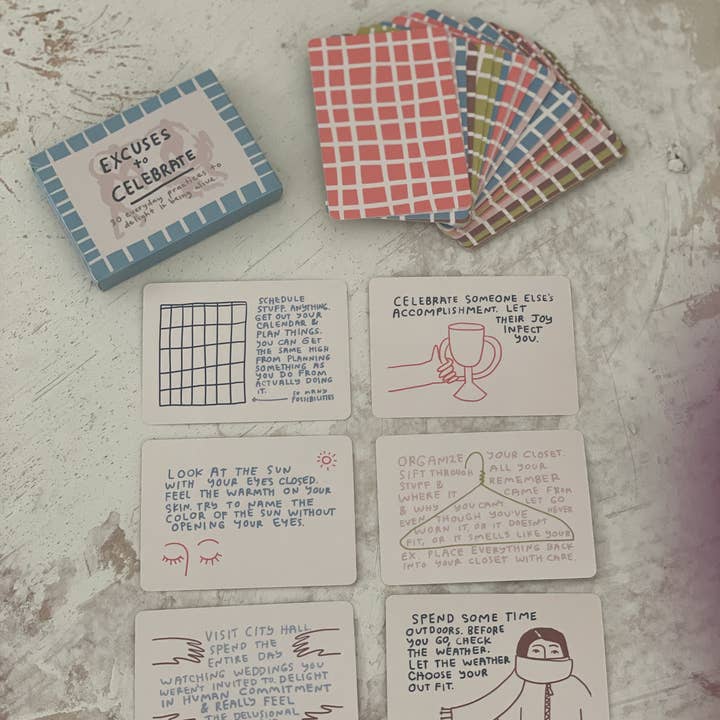 EXCUSES
to
CELEBRATE
30 everyday practices to
delight in being alive
SCHEDULE
STUFF. ANYTHING.
GET OUT YOUR
CALENDAR &
PLAN THINGS.
YOU CAN GET
THE SAME HIGH
FROM PLANNING
SOMETHING AS
YOU DO FROM
ACTUALLY DOING
IT.
SO MANY
POSSIBILITIES
CELEBRATE SOMEONE ELSE'S
ACCOMPLISHMENT. LET
THEIR JOY
INFECT
YOU.
LOOK AT THE SUN
WITH YOUR EYES CLOSED.
FEEL THE WARMTH ON YOUR
SKIN. TRY TO NAME THE
COLOR OF THE SUN WITHOUT
OPENING YOUR EYES.
ORGANIZE YOUR CLOSET.
SIFT THROUGH ALL YOUR
STUFF & REMEMBER
WHERE IT CAME FROM
& WHY YOU CAN'T LET GO
EVEN THOUGH YOU'VE NEVER
WORN IT, OR IT DOESN'T
FIT, OR IT SMELLS LIKE YOUR
EX. PLACE EVERYTHING BACK
INTO YOUR CLOSET WITH CARE.
VISIT CITY HALL.
SPEND THE
ENTIRE DAY
WATCHING WEDDINGS YOU
WEREN'T INVITED TO. DELIGHT
IN HUMAN COMMITMENT
& REALLY FEEL
THE DELUSIONAL
SPEND SOME TIME
OUTDOORS. BEFORE
YOU GO, CHECK
THE WEATHER.
LET THE WEATHER
CHOOSE YOUR
OUT FIT.